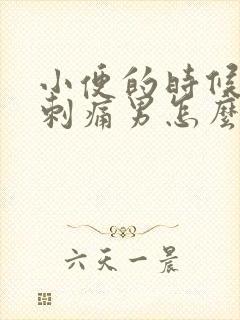 小便的時候
刺痛男怎麼
六天一晨